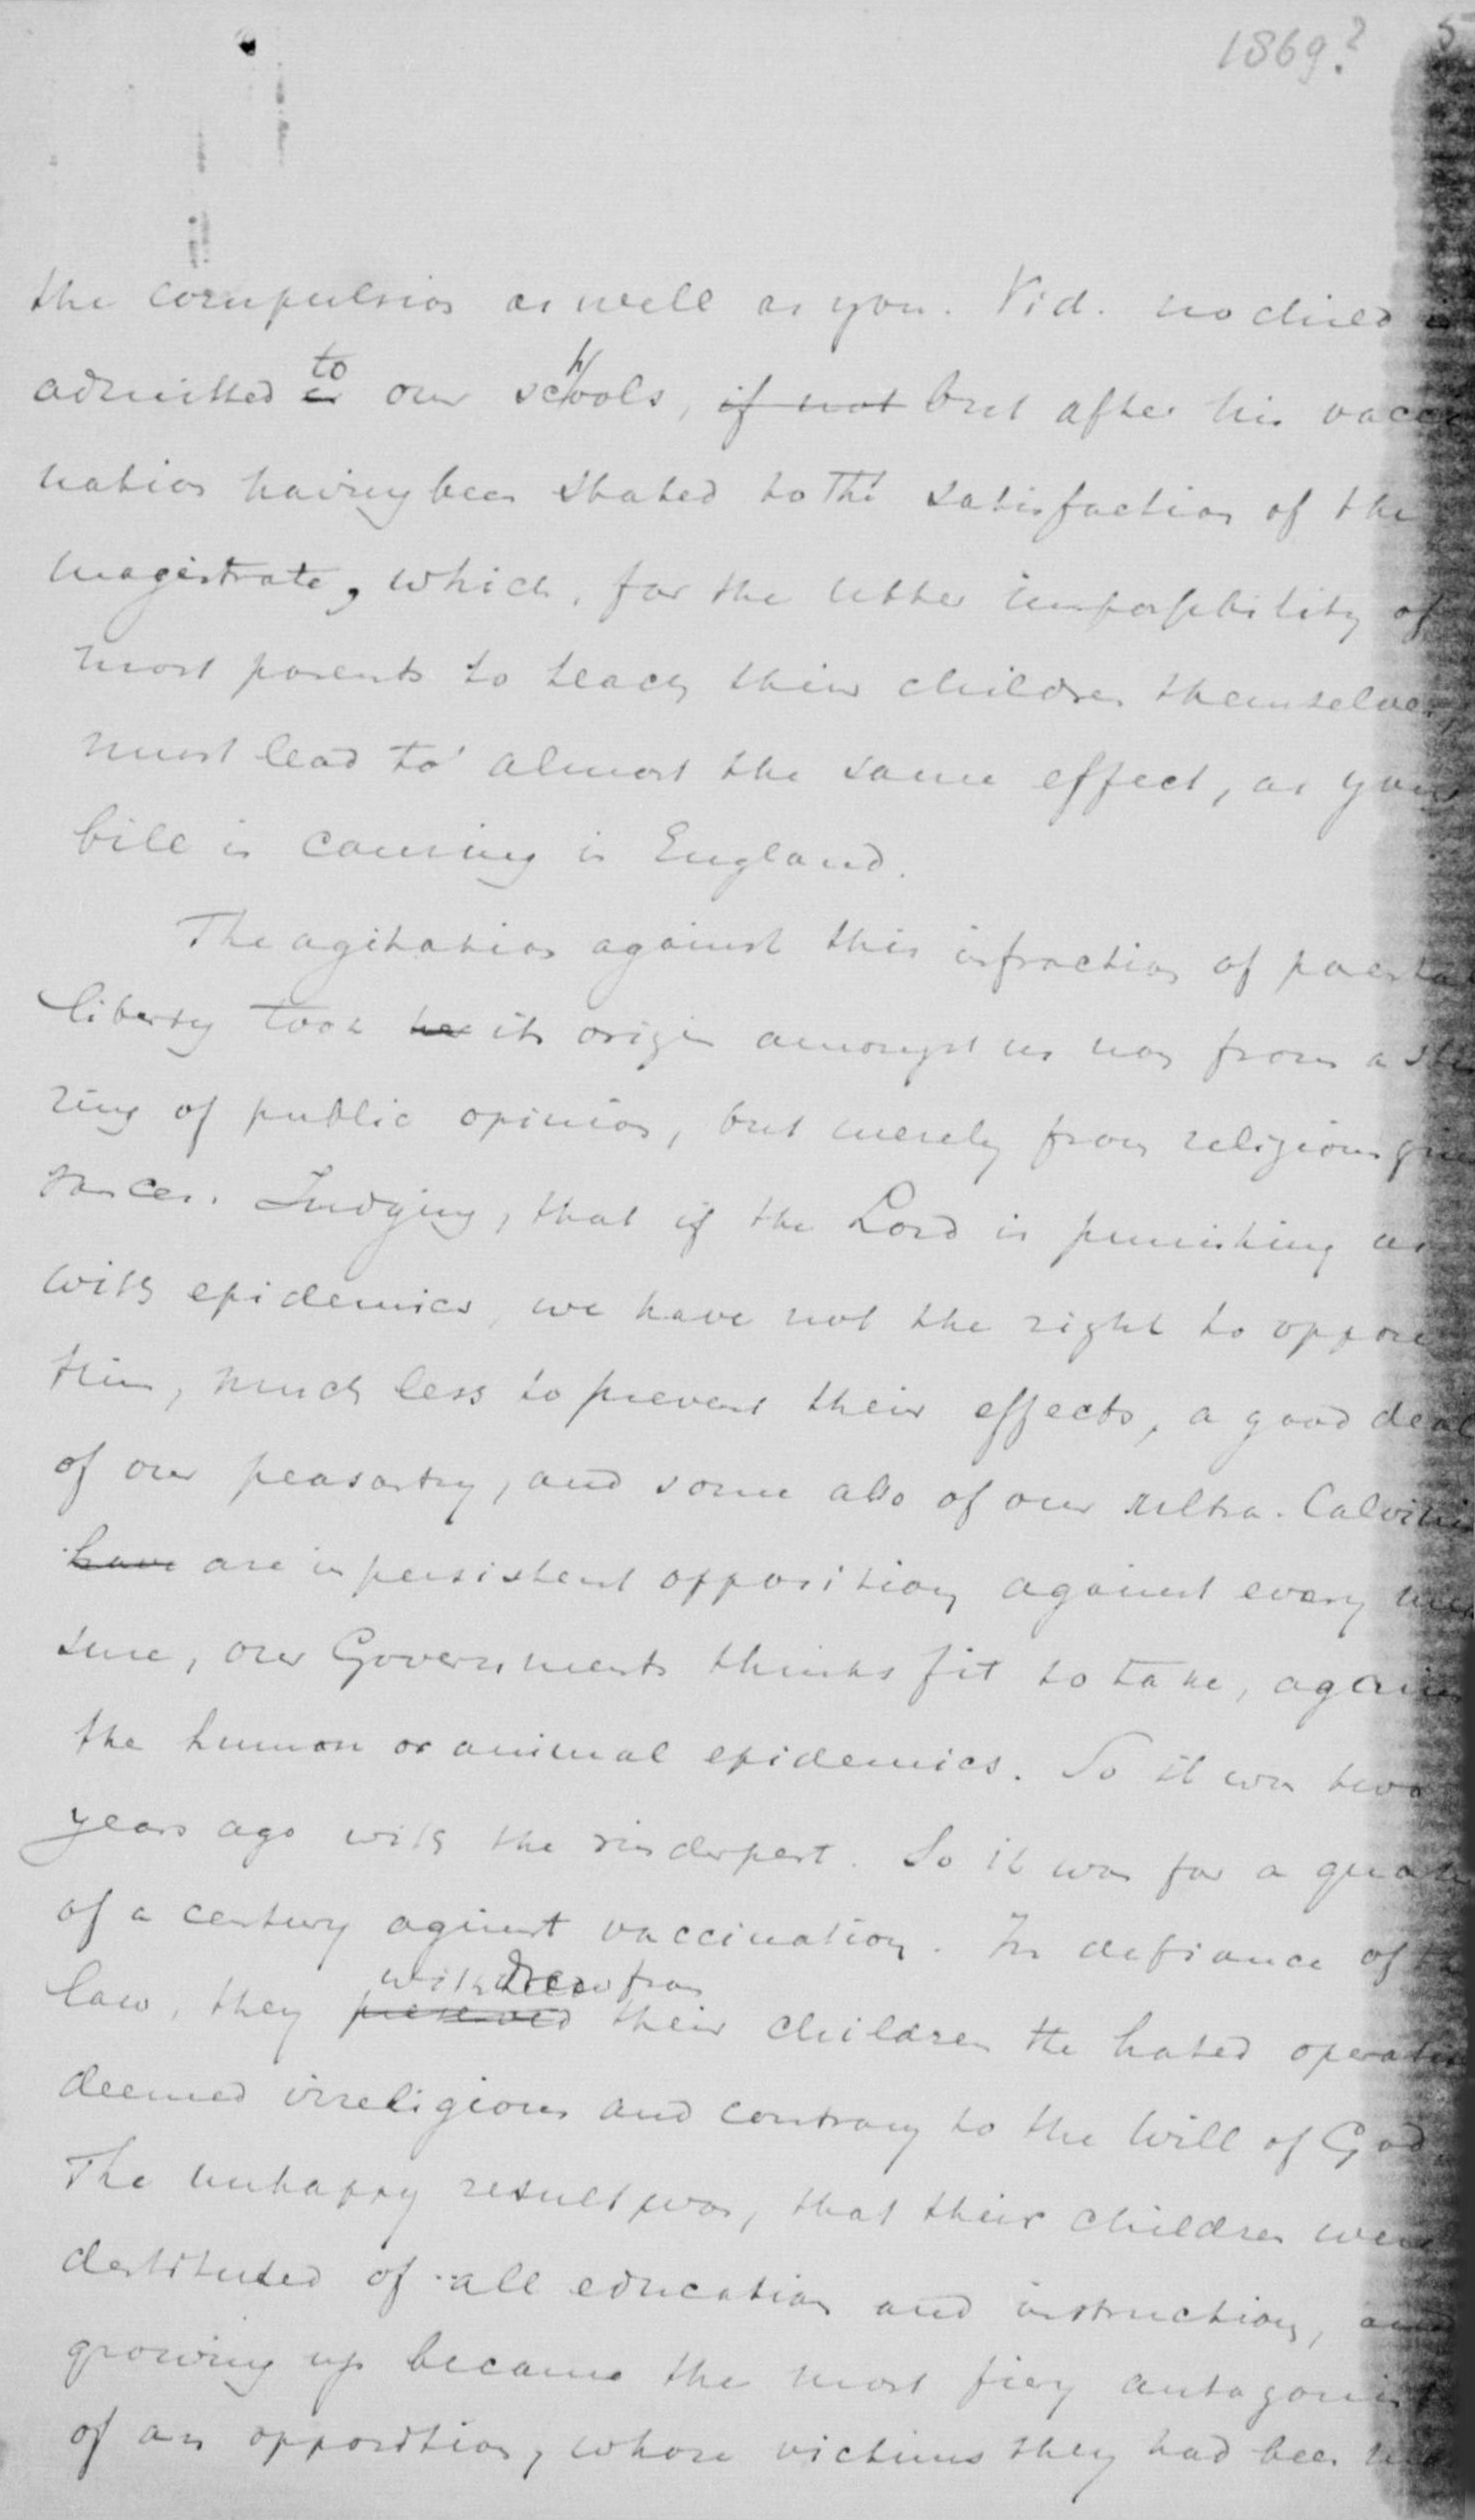 1869? 5
the compulsion as well as you. Vid. no child is
admitted to our schools, if not but after his vacci
nation having been stated to the satisfaction of the
magistrate, which, for the utter impossibility of
most parents to teach their children themselves,
must lead to almost the same effect, as your
bill is causing in England.
The agitation against this infraction of paental
liberty took its origin amongst us not from a stir
ring of public opinion, but merely from religious grie
vances. Judging, that if the Lord is punishing us
with epidemics, we have not the right to oppose
him, much less to prevent their effects, a good deal
of our peasantry, and some also of our ultra-Calvinis
have are in persistent opposition against every mea
sure, our Governments thinks fit to take, against
the human or animal epidemics. So it was two
years ago with the rinderpest. So it was for a quarter
of a century aginst vaccination. In defiance of the
withdrew from
law, they preserved their children the hated operation
deemed irreligious and contrary to the Will of God.
The unhappy result was, that their children were
destituted of all education and instruction, and
growing up became the most fiery antagonist
of an opposition, whose victims they had been